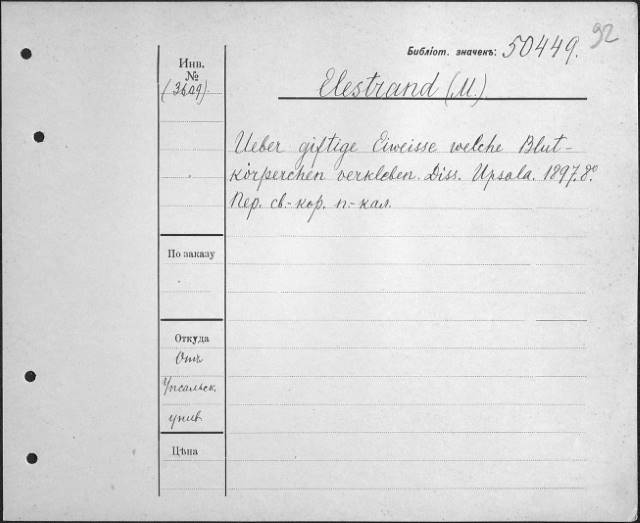 92
Библіот. значекъ: 50449.
Инв.
№
(3609)
Elestrand (M.)
Ueber giftige Eiweisse welche Blut-
körperchen verkleben. Diss. Upsala. 1897. 8º.
Пер. св.-кор. п.-кал.
По заказу
Откуда
Отъ
Упсальск.
унив.
Цѣна